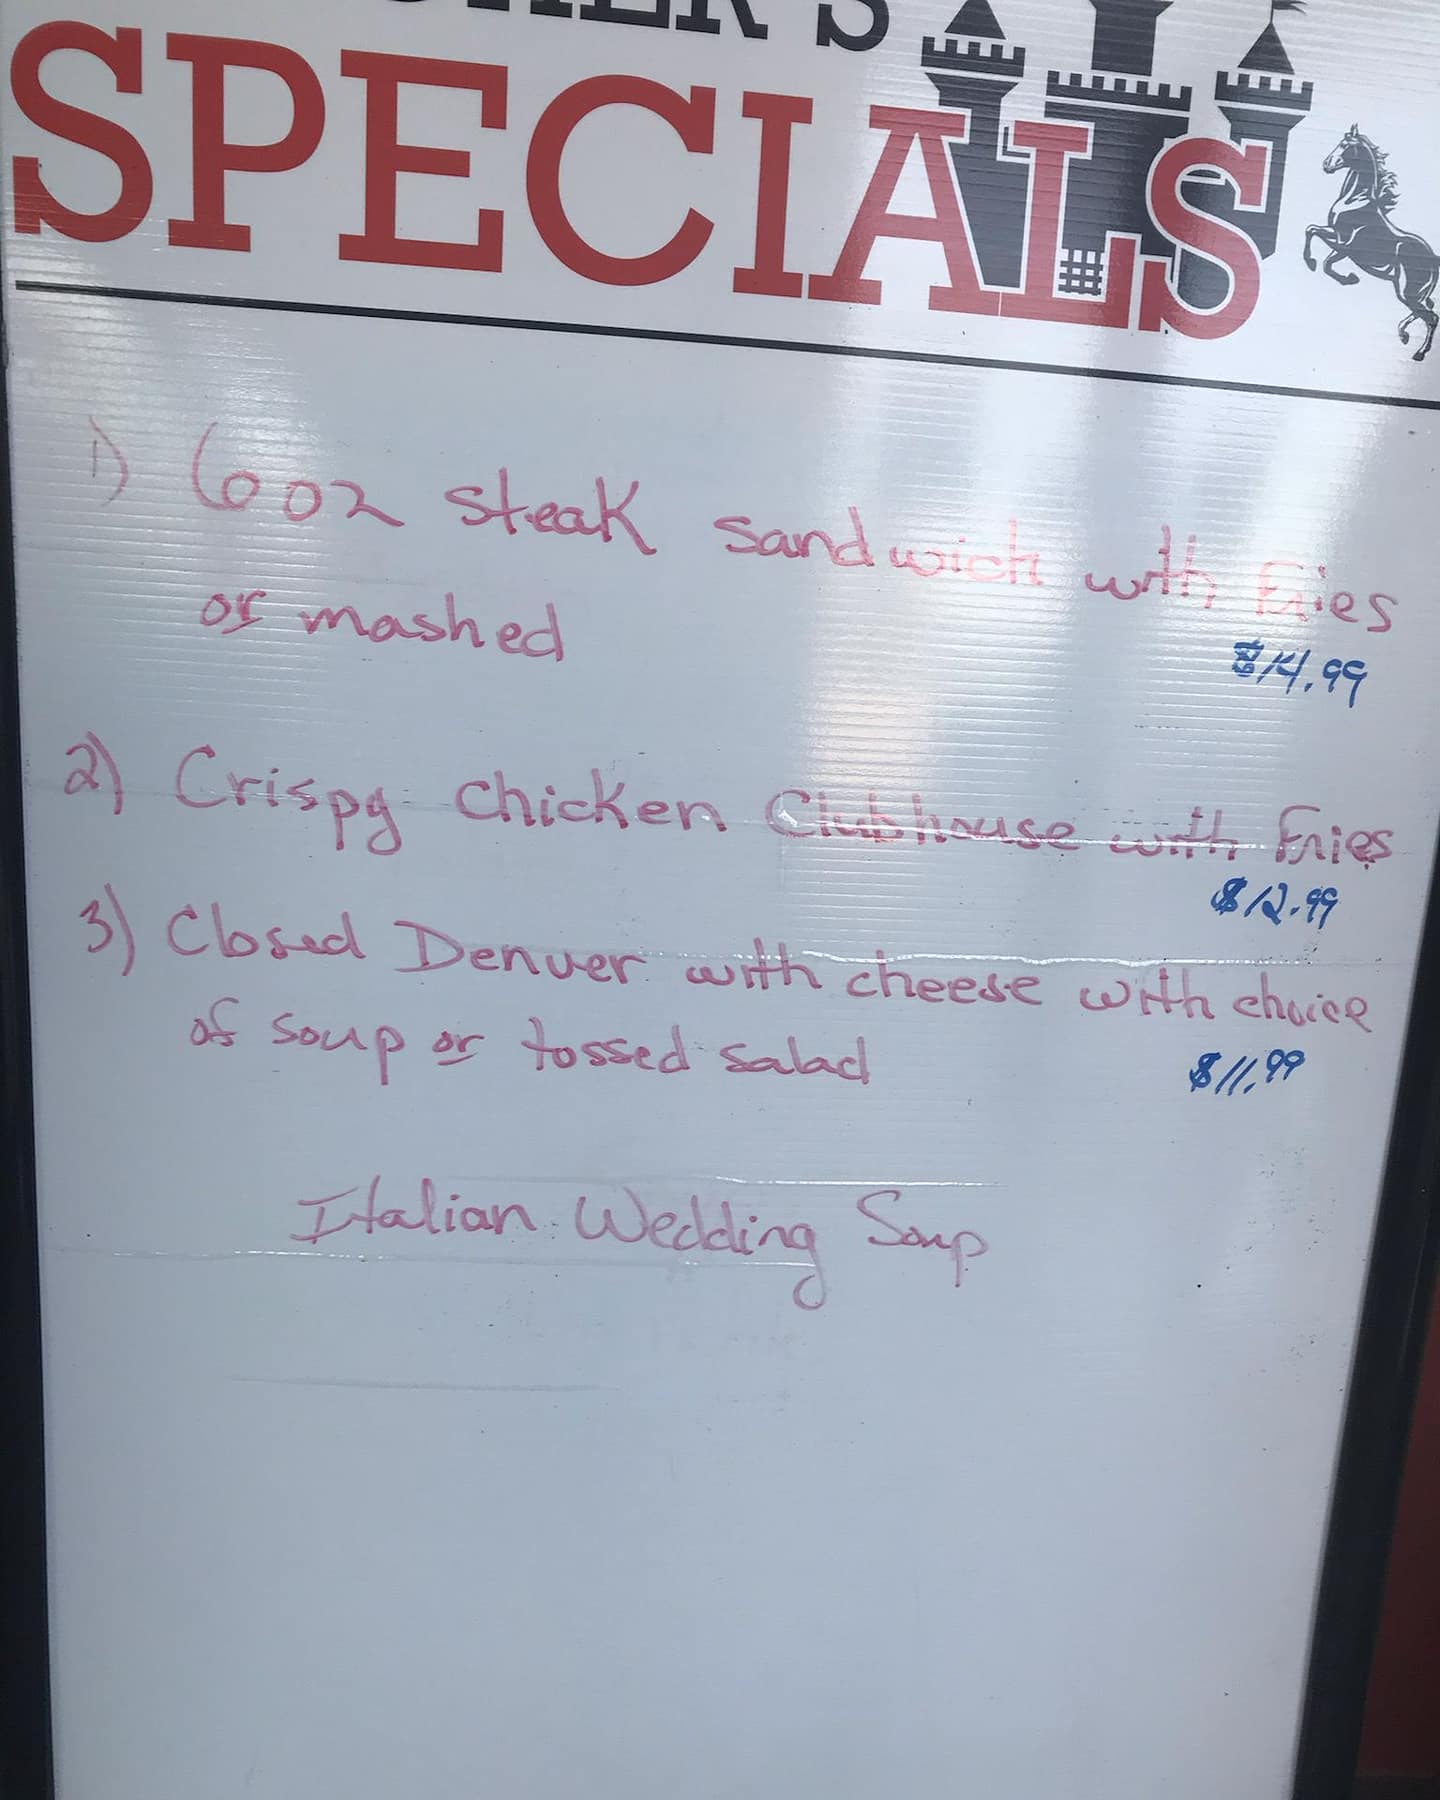 SPECIALS
1) 6 oz steak sandwich with Fries
or mashed
$14.99
2) Crispy chicken Clubhouse with Fries
$12.99
3) Closed Denver with cheese with choice
of soup or tossed salad
$11.99
Italian Wedding Soup